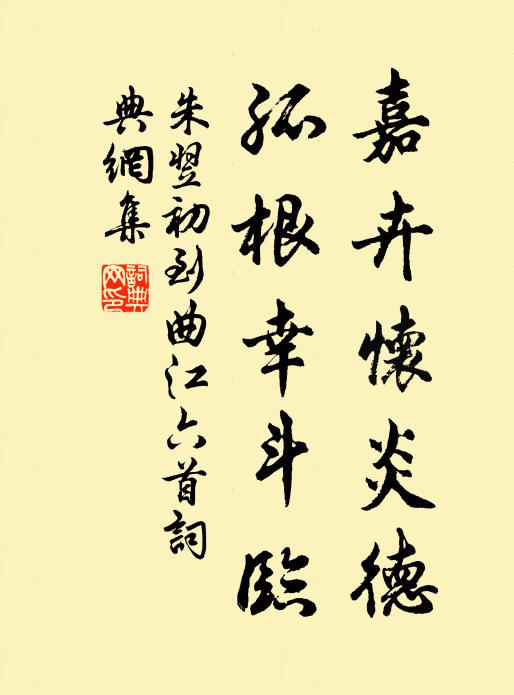 嘉卉懷炎德
孤根幸斗臨
朱翌初到曲江六首詞
典網集
詞典網印